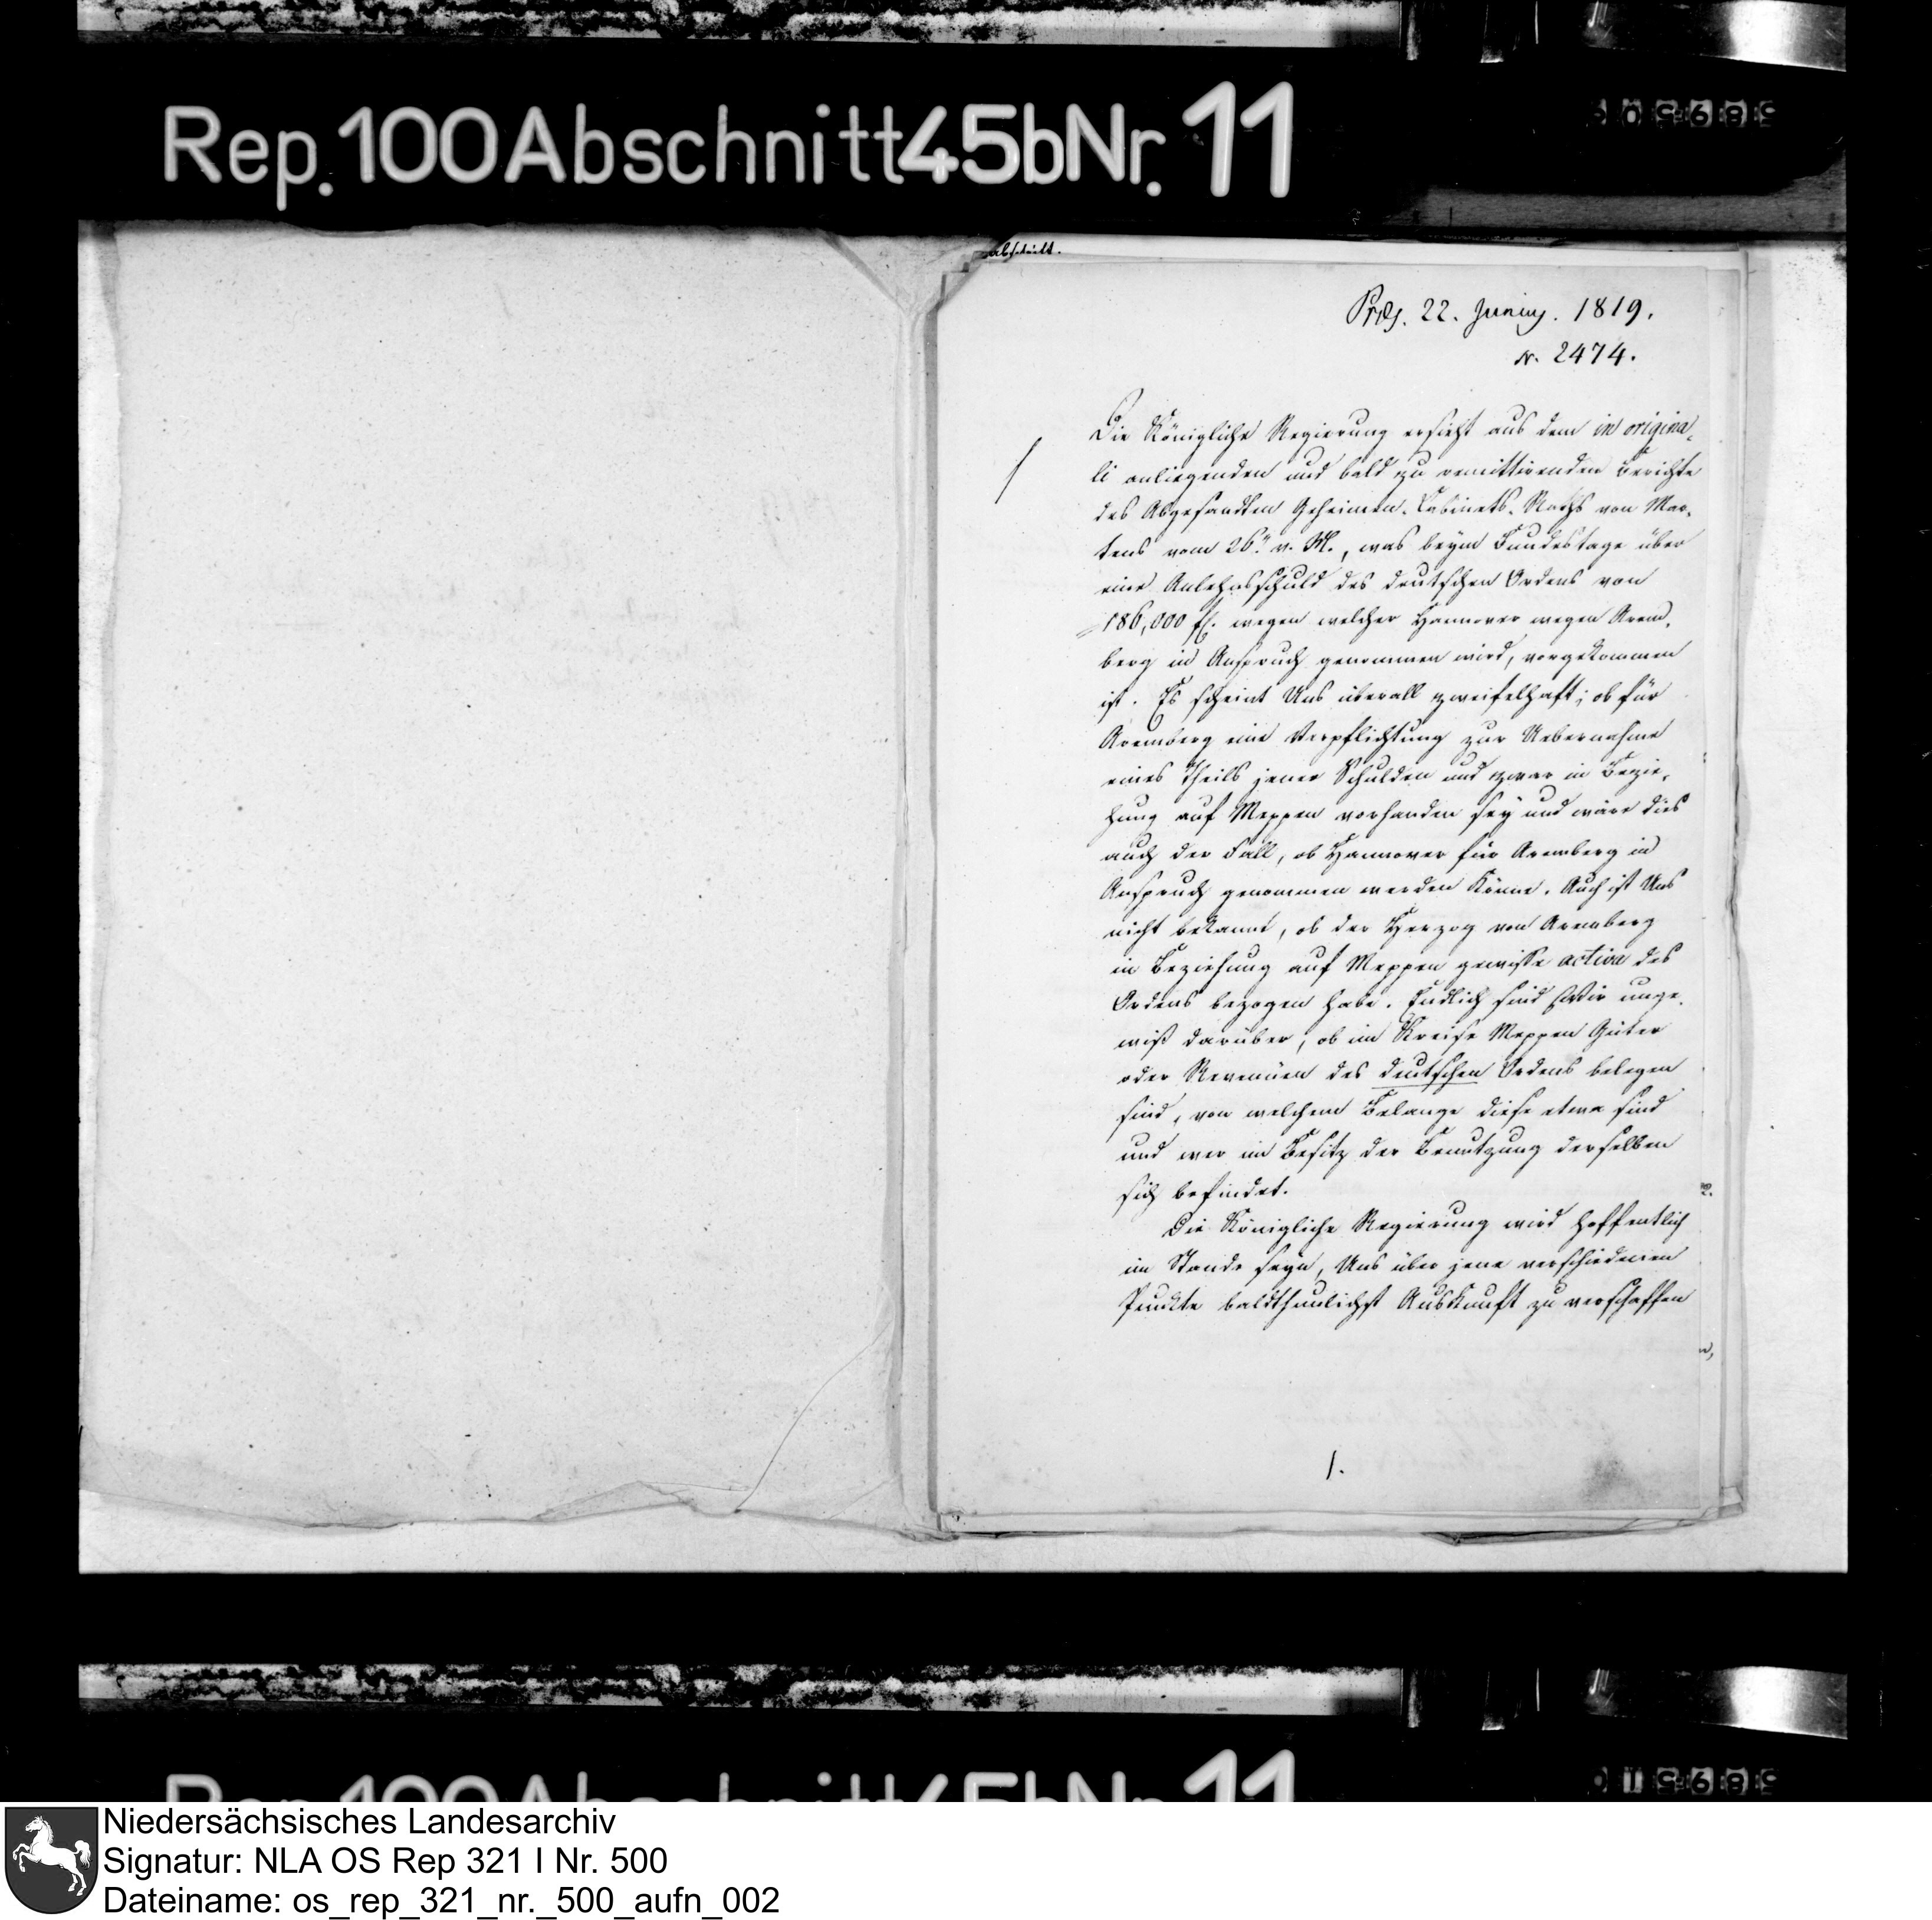 Rep. 100 Abschnitt 45b Nr. 11
Abschrift.
Präs. 22. Junius. 1819.
N. 2474.
Die Königliche Regierung ersieht aus dem in origina-
li anliegenden und bald zu remittirenden Berichte
des Abgesandten Geheimen-Cabinets-Raths von Mar-
tens vom 26n v. M., was beym Bundestage über
eine Anlehnsschuld des deutschen Ordens von
186,000 fl. wegen welcher Hannover wegen Arem-
berg in Anspruch genommen wird, vorgekommen
ist. Es scheint Uns überall zweifelhaft; ob für
Aremberg eine Verpflichtung zur Uebernahme
eines Theils jener Schulden und zwar in Bezie-
hung auf Meppen vorhanden sey und wäre dies
auch der Fall, ob Hannover für Aremberg in
Anspruch genommen werden könne. Auch ist Uns
nicht bekannt, ob der Herzog von Aremberg
in Beziehung auf Meppen gewisse activa des
Ordens bezogen habe. Endlich sind Wir unge-
wiß darüber, ob im Kreise Meppen Güter
oder Revenüen des deutschen Ordens belegen
sind, von welchem Belange diese etwa sind
und wer im Besitz der Benutzung derselben
sich befindet.
Die Königliche Regierung wird hoffentlich
im Stande seyn, Uns über jene verschiedenen
Punkte baldthunlichst Auskunft zu verschaffen
1.
Niedersächsisches Landesarchiv
Signatur: NLA OS Rep 321 I Nr. 500
Dateiname: os_rep_321_nr._500_aufn_002